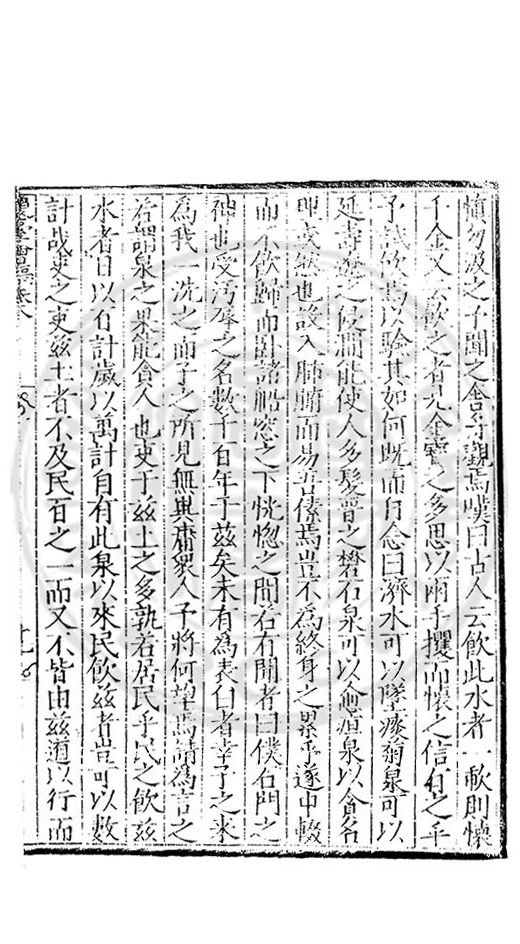 慎勿汲之予聞之舍舟觀焉嘆曰古人云飲此水者一歃則懷
千金又云飲之者見金寶之多思以兩手攫而懷之信有之乎
予試飲焉以驗其如何既而自念曰濟水可以墜痰菊泉可以
延壽
能使人多髮晉之礬石泉可以愈疽泉以貪名
理或然也設入肺腑而易吾俸焉豈不為終身之累乎遂中輟
而不飲歸而卧諸船窓之下恍惚之間若有聞者曰僕石門之
神也受汚辱之名數千百年于茲矣未有為表白者幸子之來
為我一洗之而子之所見無異衆人予將何望焉請為言之
若謂泉之果能貪人也吏于茲土之多孰若居民乎民之飲茲
水者日以石計歲以萬計自有此泉以來民飲茲者豈可以數
計哉吏之吏茲土者不及民百之一而又不皆由茲道以行而